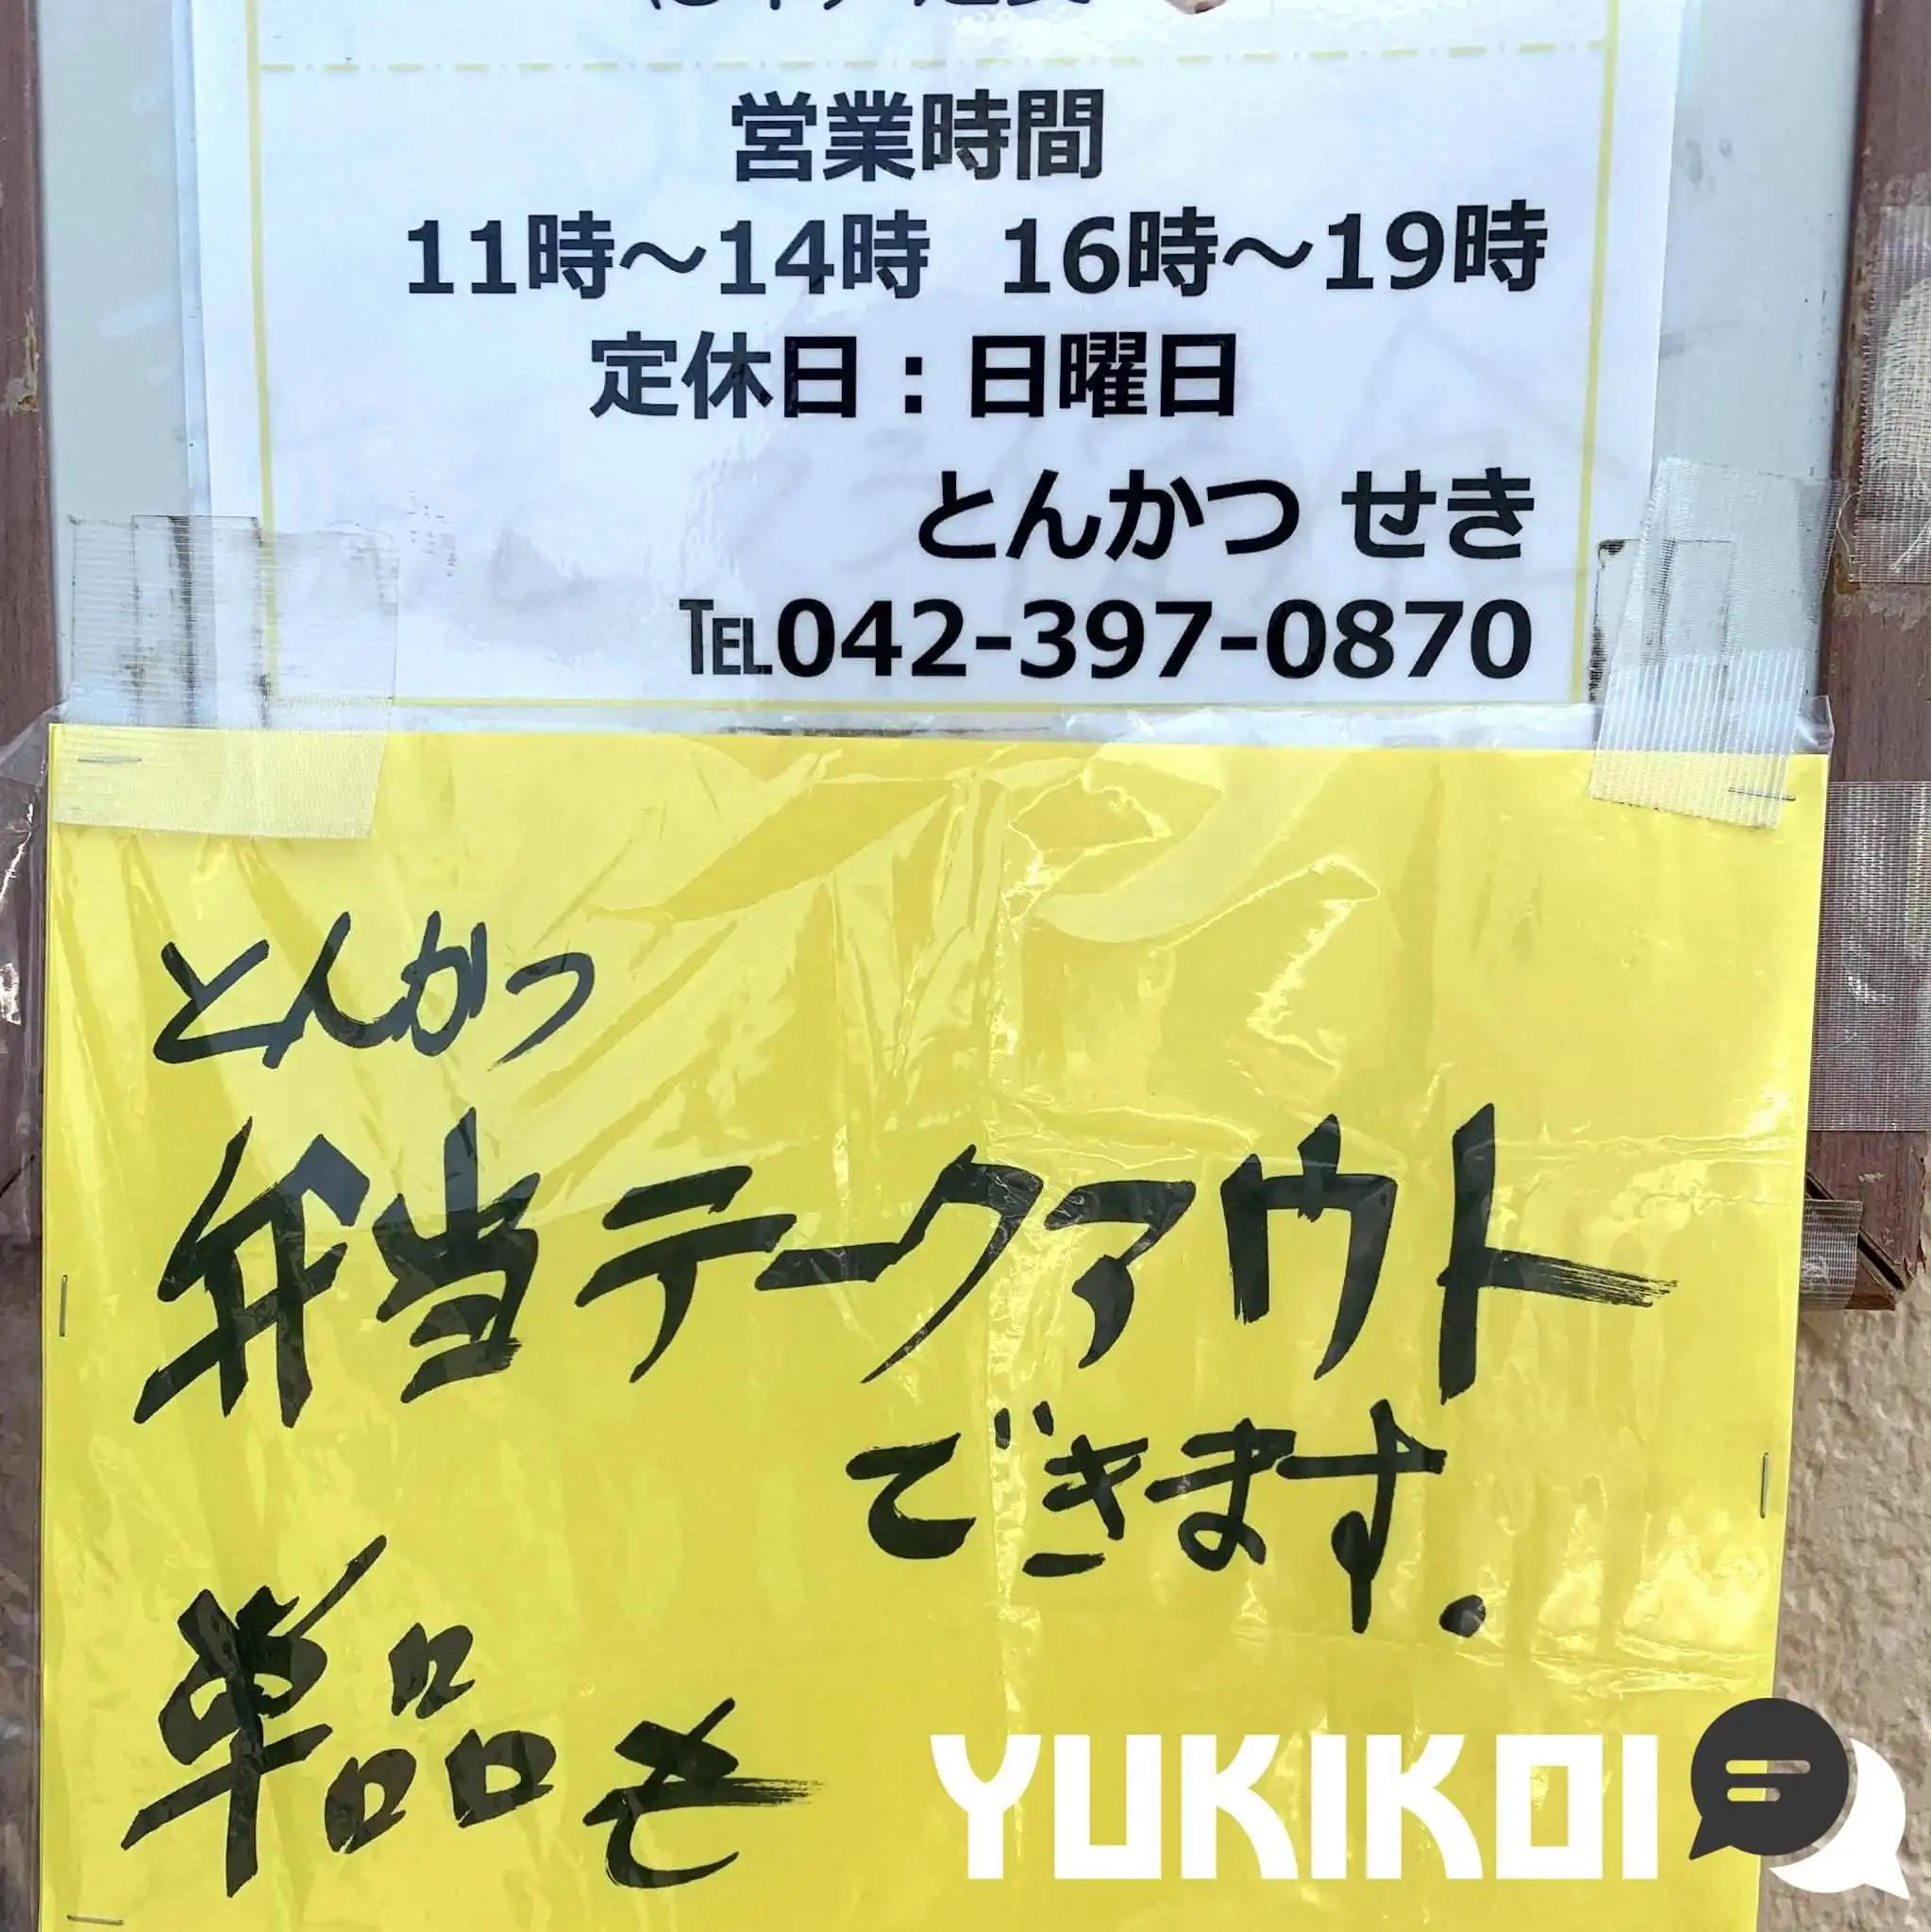 営業時間
11時～14時 16時～19時
定休日：日曜日
とんかつ せき
TEL042-397-0870
とんかつ
弁当テークアウト
できます.
単品も
YUKIKOI